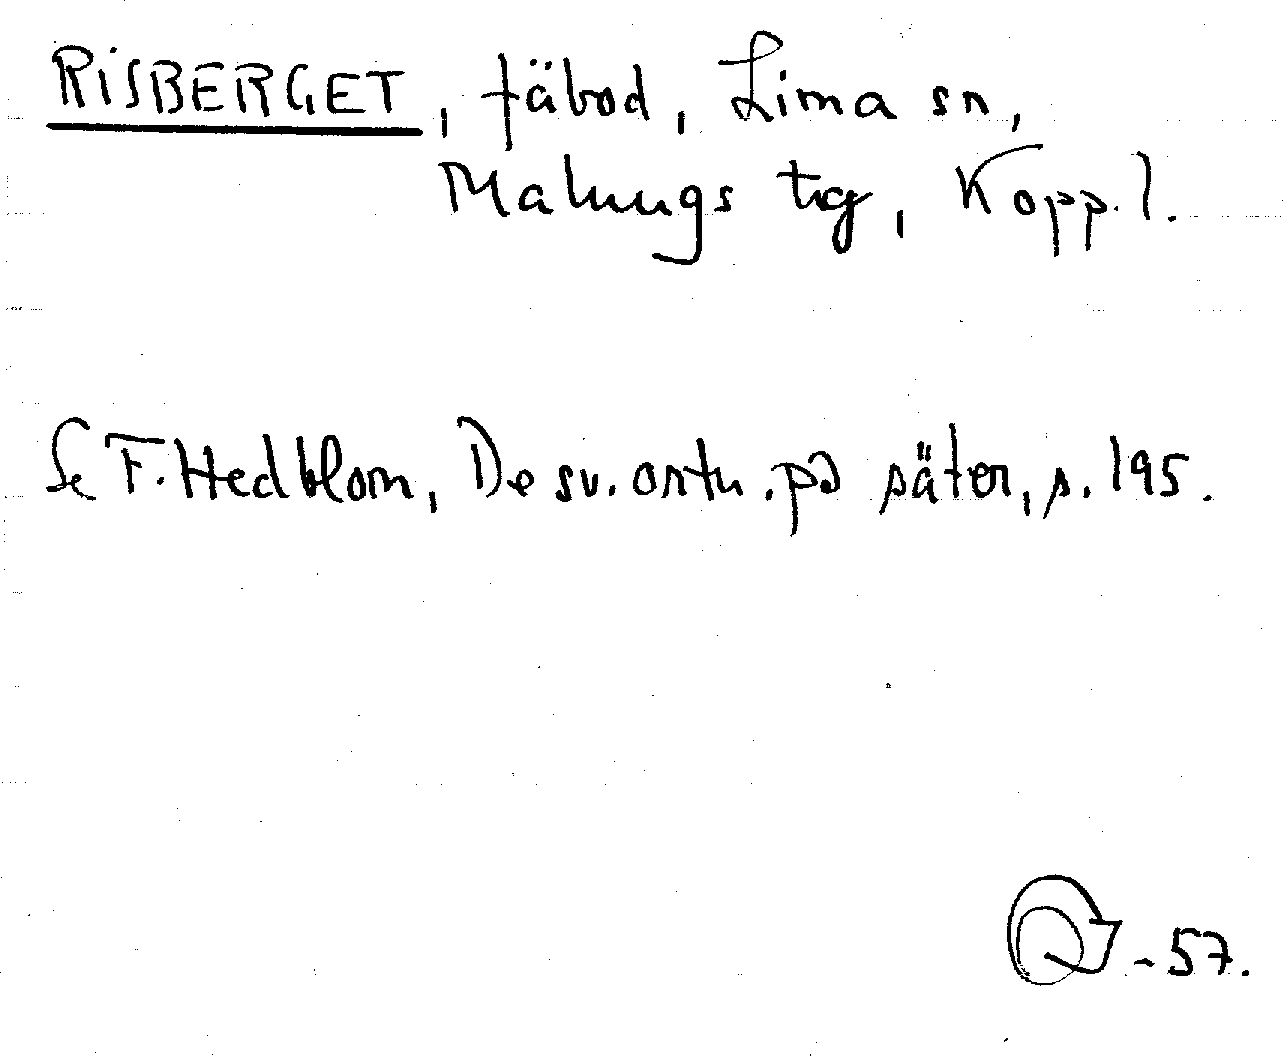 RISBERGET, fäbod, Lima sn,
Malungs tg, Kopp. l.
Se F. Hedblom, De sv. ortn. på säter, s. 195.
-57.